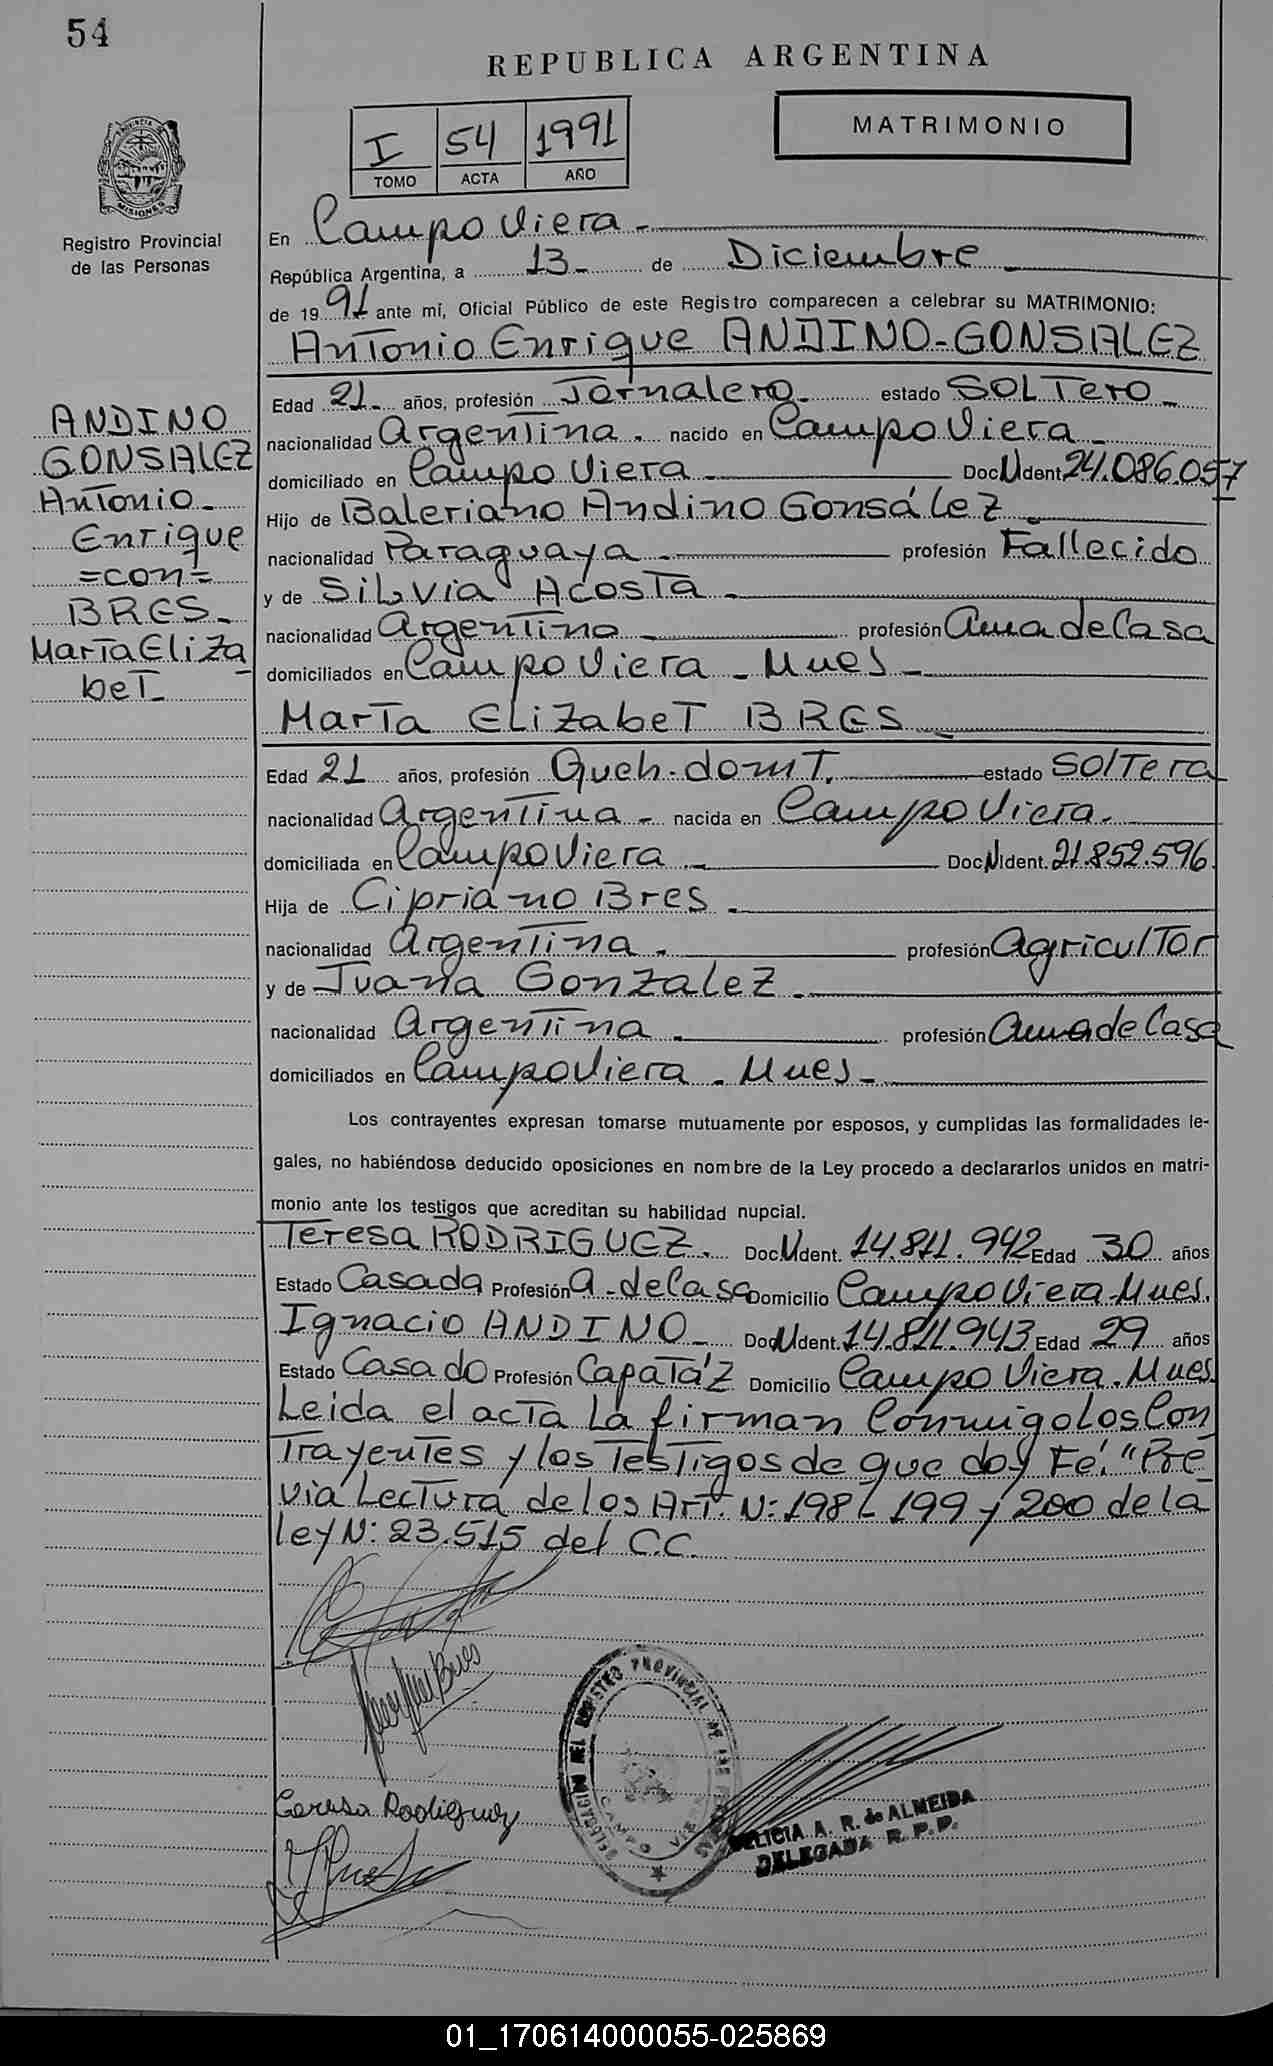 54
REPUBLICA ARGENTINA
I 54 1991
TOMO ACTA AÑO
MATRIMONIO
PROVINCIA DE
MISIONES
Registro Provincial
de las Personas
ANDINO
GONSALEZ
Antonio
Enrique
=con=
BRES-
Marta Eliza
bet-
En Campo Viera-
República Argentina, a 13- de Diciembre-
de 1991 ante mí, Oficial Público de este Registro comparecen a celebrar su MATRIMONIO:
Antonio Enrique ANDINO-GONSALEZ
Edad 21- años, profesión Jornalero- estado SOLTero-
nacionalidad Argentina. nacido en Campo Viera-
domiciliado en Campo Viera- Doc N Ident. 24.086.057
Hijo de Baleriano Andino Gonsález-
nacionalidad Paraguaya- profesión Fallecido
y de Silvia Acosta-
nacionalidad Argentina- profesión Ama de Casa
domiciliados en Campo Viera-
Marta Elizabet BRES-
Edad 21 años, profesión Queh. domt. estado Soltera
nacionalidad Argentina- nacida en Campo Viera-
domiciliada en Campo Viera- Doc N Ident. 21.852.596.
Hija de Cipriano Bres-
nacionalidad Argentina- profesión Agricultor
y de Juana Gonzalez-
nacionalidad Argentina- profesión ama de Casa
domiciliados en Campo Viera-
Los contrayentes expresan tomarse mutuamente por esposos, y cumplidas las formalidades le-
gales, no habiéndose deducido oposiciones en nombre de la Ley procedo a declararlos unidos en matri-
monio ante los testigos que acreditan su habilidad nupcial.
Teresa RODRIGUEZ. Doc N Ident. 14.811.942 Edad 30 años
Estado Casada Profesión A. de Casa Domicilio Campo Viera-
Ignacio ANDINO- Doc N Ident. 14.811.943 Edad 29 años
Estado Casado Profesión Capatáz Domicilio Campo Viera.
Leida el acta la firman Conmigo los Con
Trayentes y los Testigos de que doy Fé. "Pre
via Lectura de los Art. N: 198- 199 y 200 de la
ley N: 23.515 del C.C.
Bres
Teresa Rodriguez
DELEGACION DEL REGISTRO PROVINCIAL DE LAS PERSONAS
CAMPO VIERA
FELICIA A. R. de ALMEIDA
DELEGADA R. P. P.
01_170614000055-025869